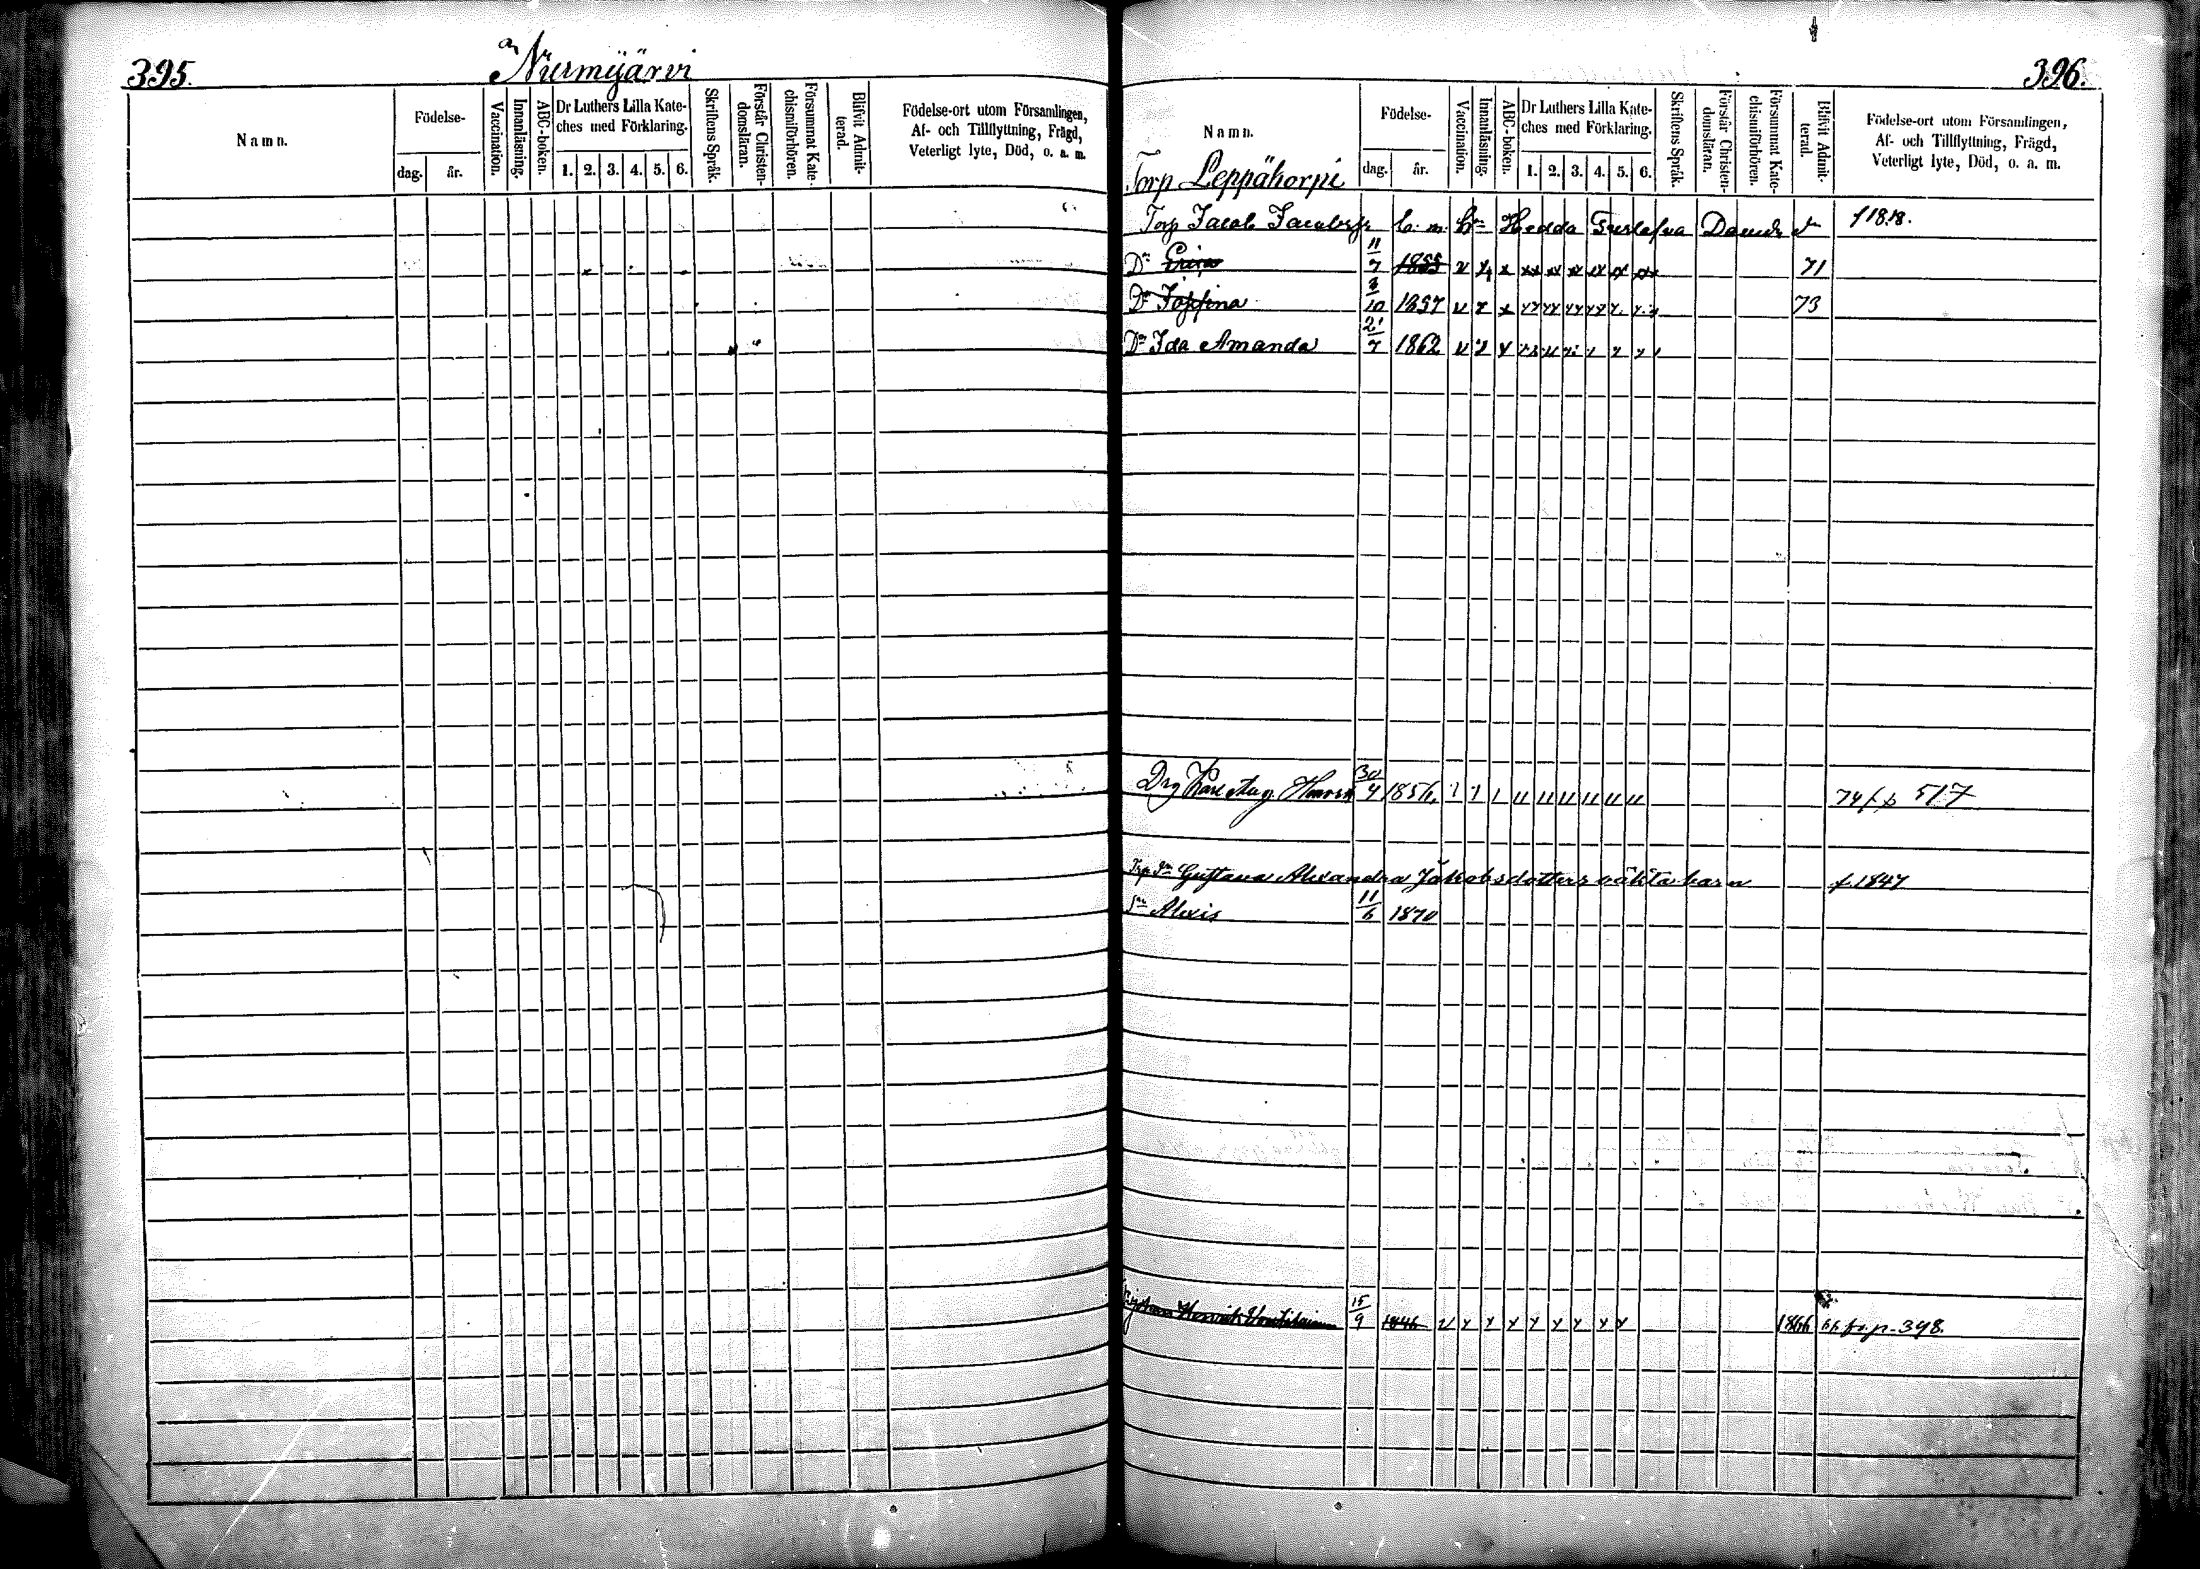 395. Nurmijärvi
Namn.
Födelse-
dag. år.
Vaccination.
Innanläsning.
ABC-boken.
Dr Luthers Lilla Kate-
ches med Förklaring.
1. 2. 3. 4. 5. 6.
Skriftens Språk.
Förstår Christen-
domsläran.
Försummat Kate-
chismiförhören.
Blifvit Admit-
terad.
Födelse-ort utom Församlingen,
Af- och Tillflyttning, Frägd,
Veterligt lyte, Död, o. a. m.
396.
Namn.
Födelse-
dag. år.
Vaccination.
Innanläsning.
ABC-boken.
Dr Luthers Lilla Kate-
ches med Förklaring.
1. 2. 3. 4. 5. 6.
Skriftens Språk.
Förstår Christen-
domsläran.
Försummat Kate-
chismiförhören.
Blifvit Admit-
terad.
Födelse-ort utom Församlingen,
Af- och Tillflyttning, Frägd,
Veterligt lyte, Död, o. a. m.
Torp Leppäkorpi
Torp Jacob Jacobss Hedda Gustafva f 1818.
Dr 11/7 1855 v x x xx xx xx xx xx xx 71
Dr Josefina 3/10 1857 73
Dr Ida Amanda 21/7 1862
Drg Karl Aug. 30/4 1856 74 f p 517
Gustava Alexandra Jakobsdotters oäkta barn f. 1847
Sn Alexis 11/6 1870
Henrik 15/9 1846 v x x x x x x x x 1866 p. 398.